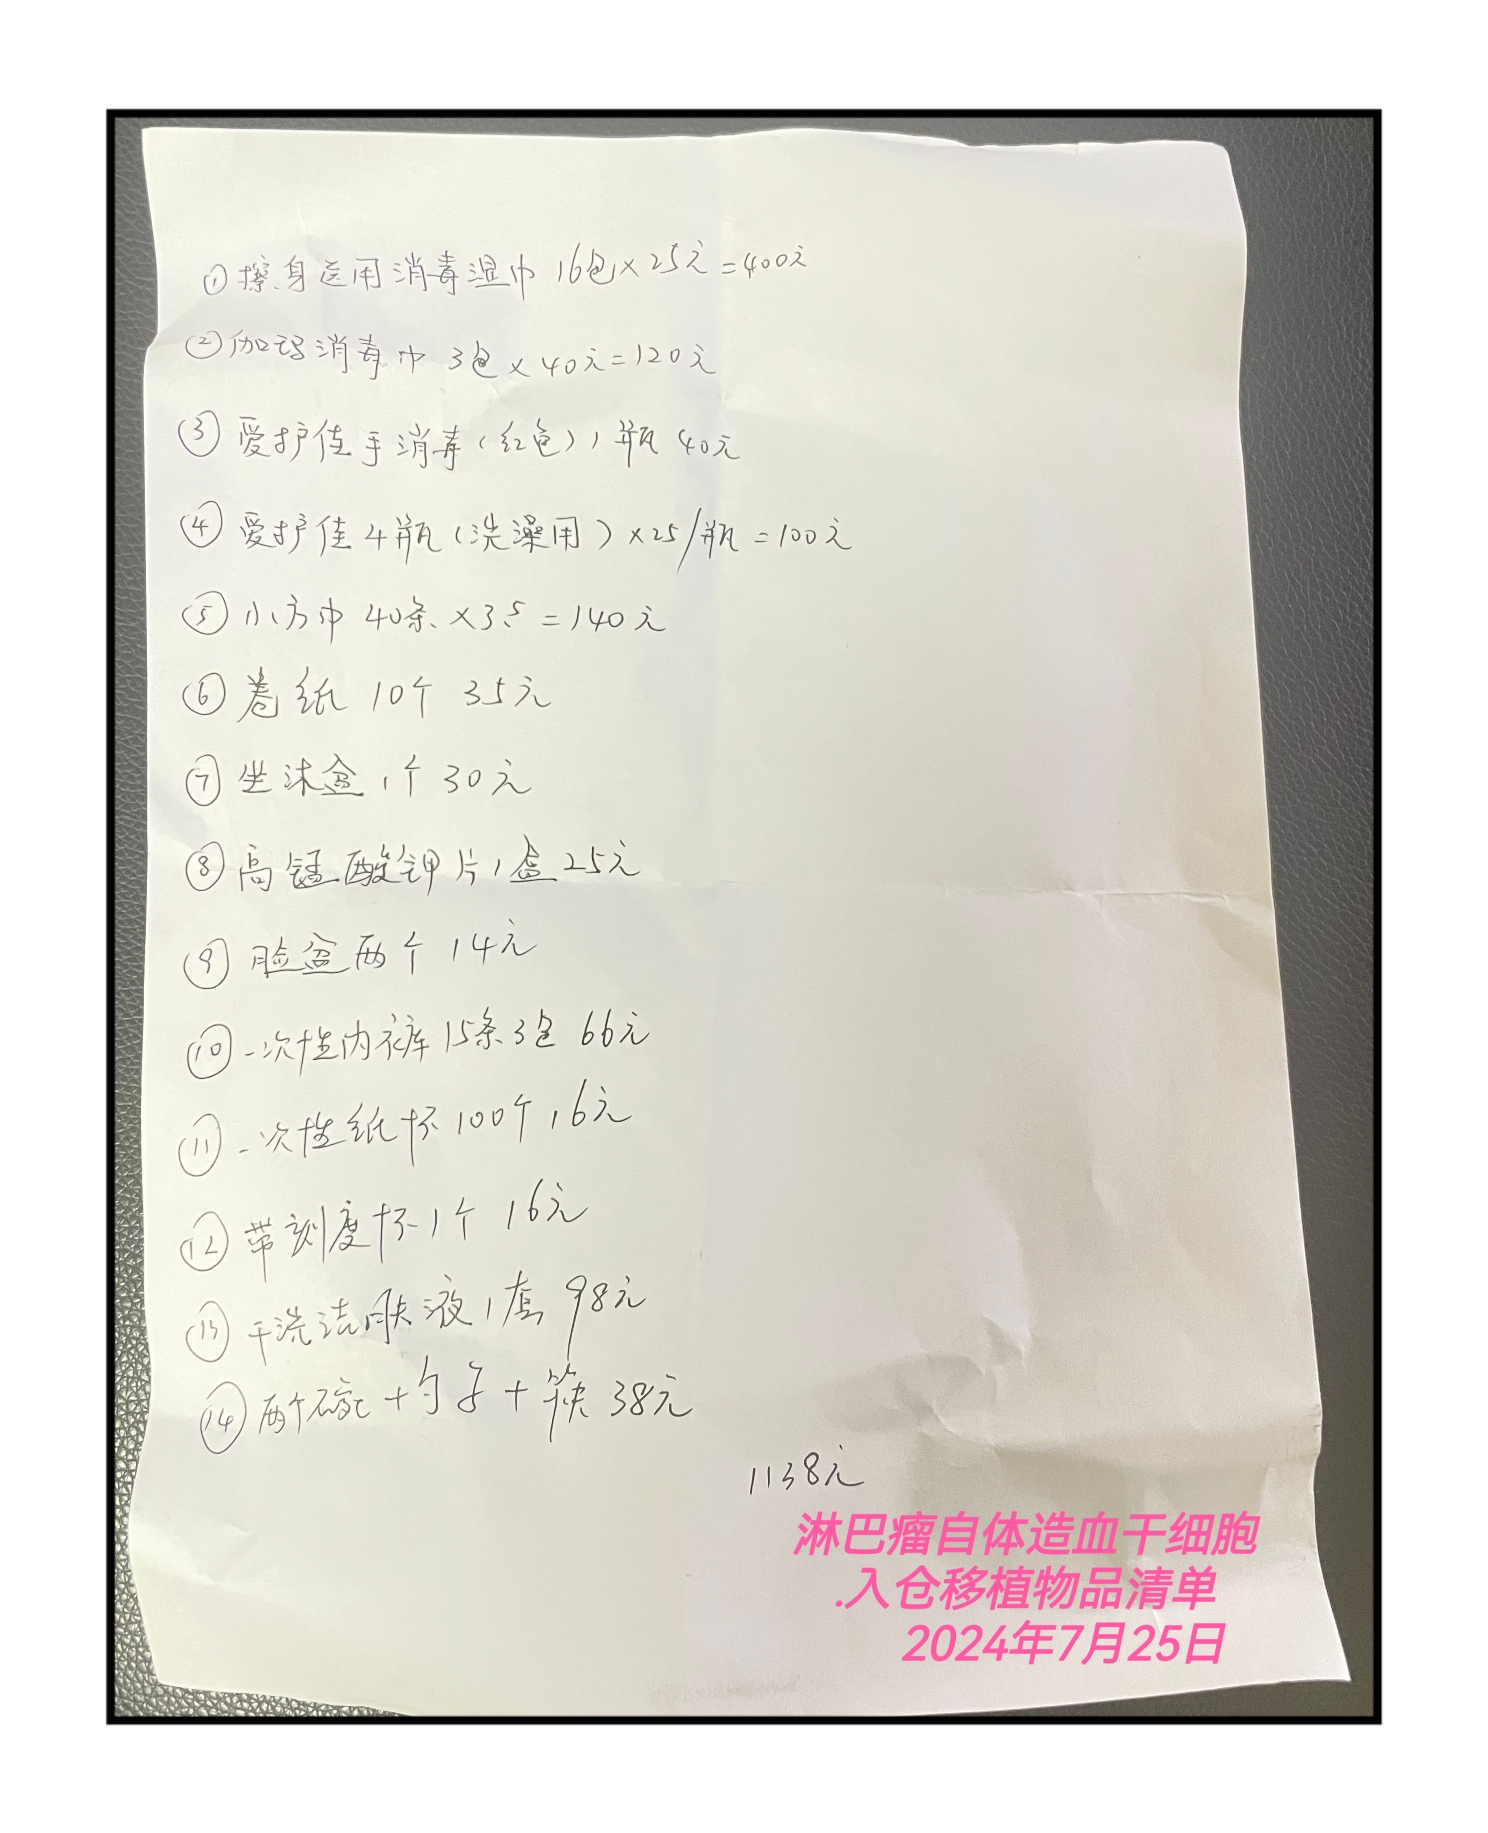 ①擦身医用消毒湿巾 16包×25元=400元
②伽玛消毒巾 3包×40元=120元
③爱护佳手消毒(红色)1瓶 40元
④爱护佳4瓶(洗澡用)×25/瓶=100元
⑤小方巾 40条×3.5=140元
⑥卷纸 10个 35元
⑦坐沐盆1个 30元
⑧高锰酸钾片1盒25元
⑨脸盆两个 14元
⑩一次性内裤15条3包 66元
⑪一次性纸杯100个16元
⑫带刻度杯1个 16元
⑬干洗洁肤液1套 98元
⑭两个碗+勺子+筷 38元
1138元
淋巴瘤自体造血干细胞
.入仓移植物品清单
2024年7月25日